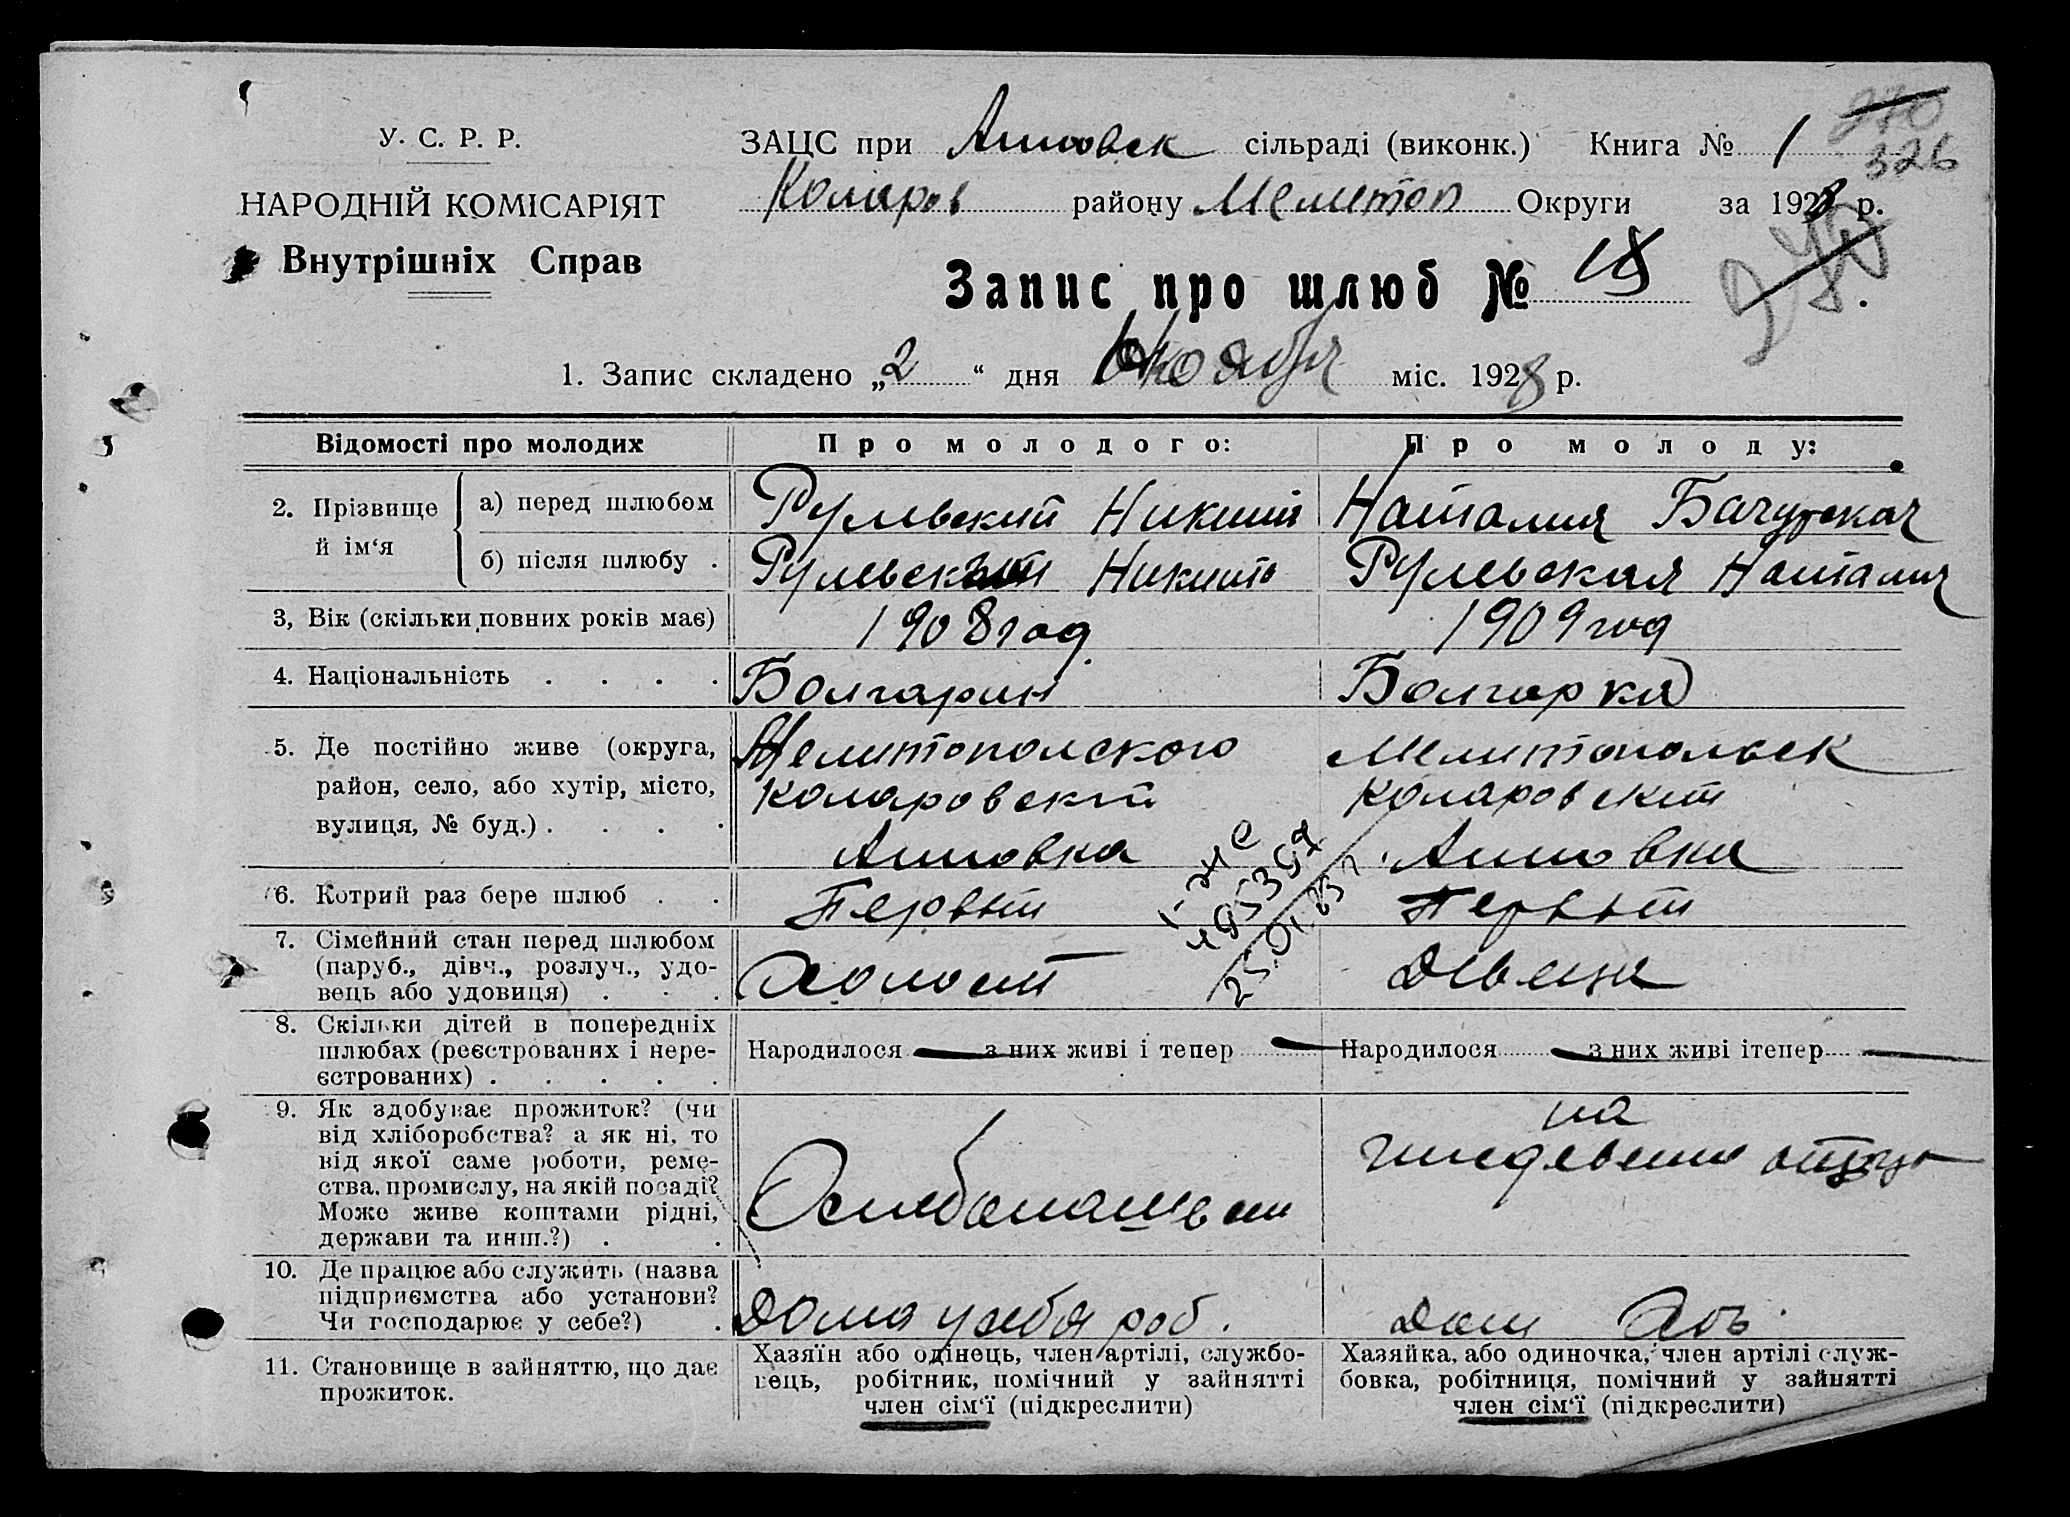 270
326
У. С. Р. Р.
ЗАЦС при Анновск сільраді (виконк.) Книга № 1
НАРОДНІЙ КОМІСАРІЯТ
Коларов району Мелитоп Округи за 1928 р.
Внутрішніх Справ
Запис про шлюб № 18
1. Запис складено „2“ дня Ноября міс. 1928 р.
Відомості про молодих Про молодого: Про молоду:
2. Прізвище й ім‘я
а) перед шлюбом Рулевский Никита Наталия
б) після шлюбу Рулевский Никита Рулевская Наталия
3, Вік (скільки повних років має) 1908 год 1909 год
4. Національність Болгарин Болгарка
5. Де постійно живе (округа, Мелитополского Мелитопольск
район, село, або хутір, місто, Коларовский Коларовский
вулиця, № буд.) Анновка Анновка
6. Котрий раз бере шлюб Первый Первый
7. Сімейний стан перед шлюбом
(паруб., дівч., розлуч., удо-
вець або удовиця) Холост Девица
25.01.83
8. Скільки дітей в попередніх
шлюбах (реєстрованих і нере-
єстрованих)
Народилося з них живі і тепер Народилося з них живі ітепер
9. Як здобуває прожиток? (чи на
від хліборобства? а як ні, то иждевении отца
від якої саме роботи, реме-
ства, промислу, на якій посаді?
Може живе коштами рідні,
держави та инш.?)
10. Де працює або служить (назва
підприємства або установи?
Чи господарює у себе?) Дома у себя роб. Дом хоз.
11. Становище в зайняттю, що дає
прожиток.
Хазяїн або одінець, член артілі, службо-
вець, робітник, помічний у зайнятті
член сім‘ї (підкреслити)
Хазяйка, або одиночка, член артілі служ-
бовка, робітниця, помічний у зайнятті
член сім‘ї (підкреслити)